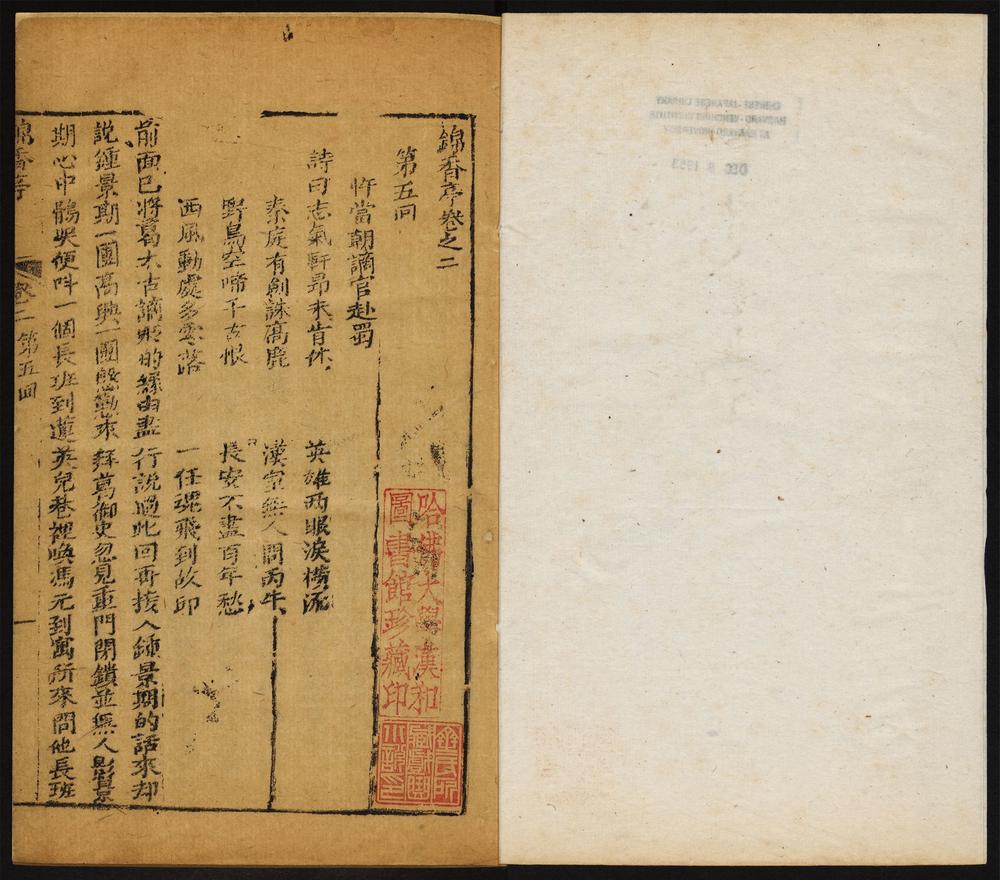 錦香亭卷之二
第五回
忤當朝謫官赴蜀
詩曰志氣軒昂未肯休
英雄兩眼淚橫流
秦庭有劍誅高鹿
漢室無人問丙牛
野鳥空啼千古恨
長安不盡百年愁
西風動處多零落
一任魂飛到故邱
前面已將葛太古謫貶的緣由盡行說過此回再接入鍾景期的話來却
說鍾景期一團高興一團慇懃來拜葛御史忽見重門閉鎖並無人影景
期心中鶻突便呌一個長班到蓮英兒巷裡喚馮元到寓所來問他長班
錦香亭
卷二 第五回
一
哈佛大學漢和
圖書館珍藏印
CHINESE-JAPANESE LIBRARY
HARVARD-YENCHING INSTITUTE
AT HARVARD UNIVERSITY
DEC 8 1953